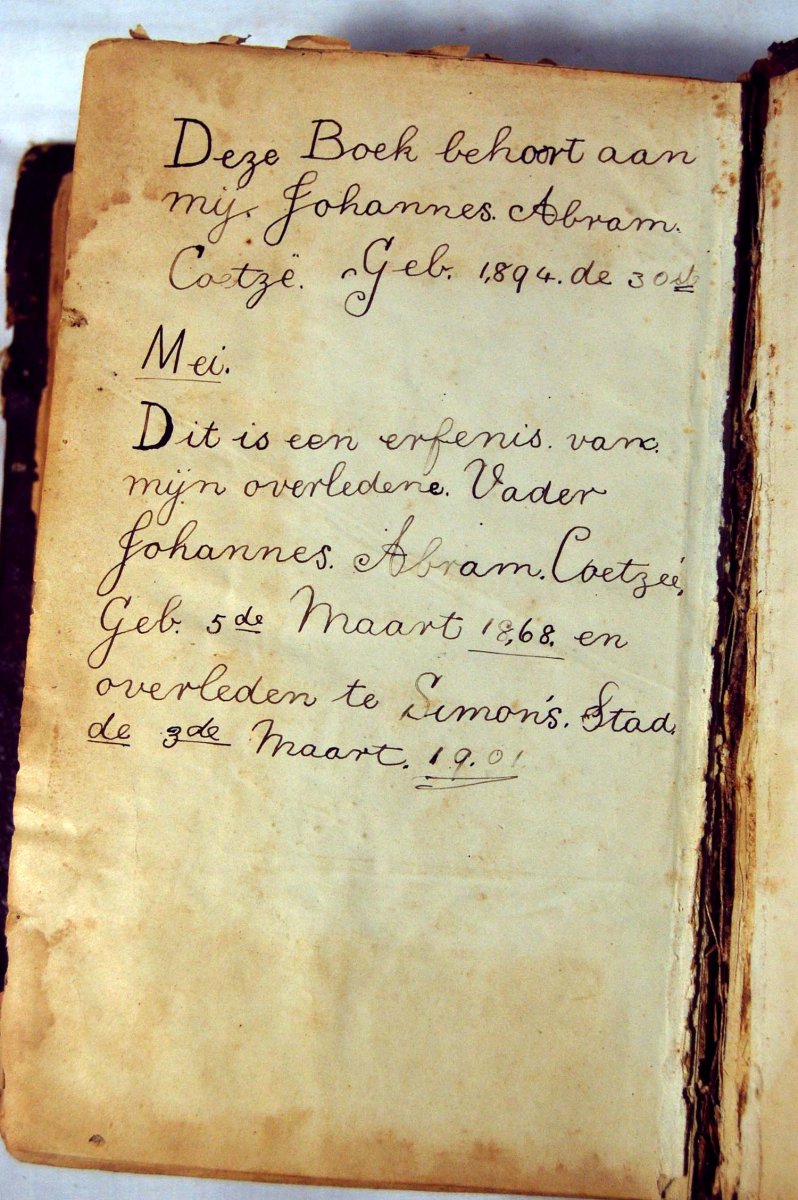 Deze Boek behoort aan
mij. Johannes. Abram.
Coetzë. Geb. 1,894. de 30ste
Mei.
Dit is een erfenis. van.
mijn overledene. Vader
Johannes. Abram. Coetzeé,
Geb. 5de Maart 18,68. en
overleden te Simon's. Stad.
de 3de Maart. 19.01